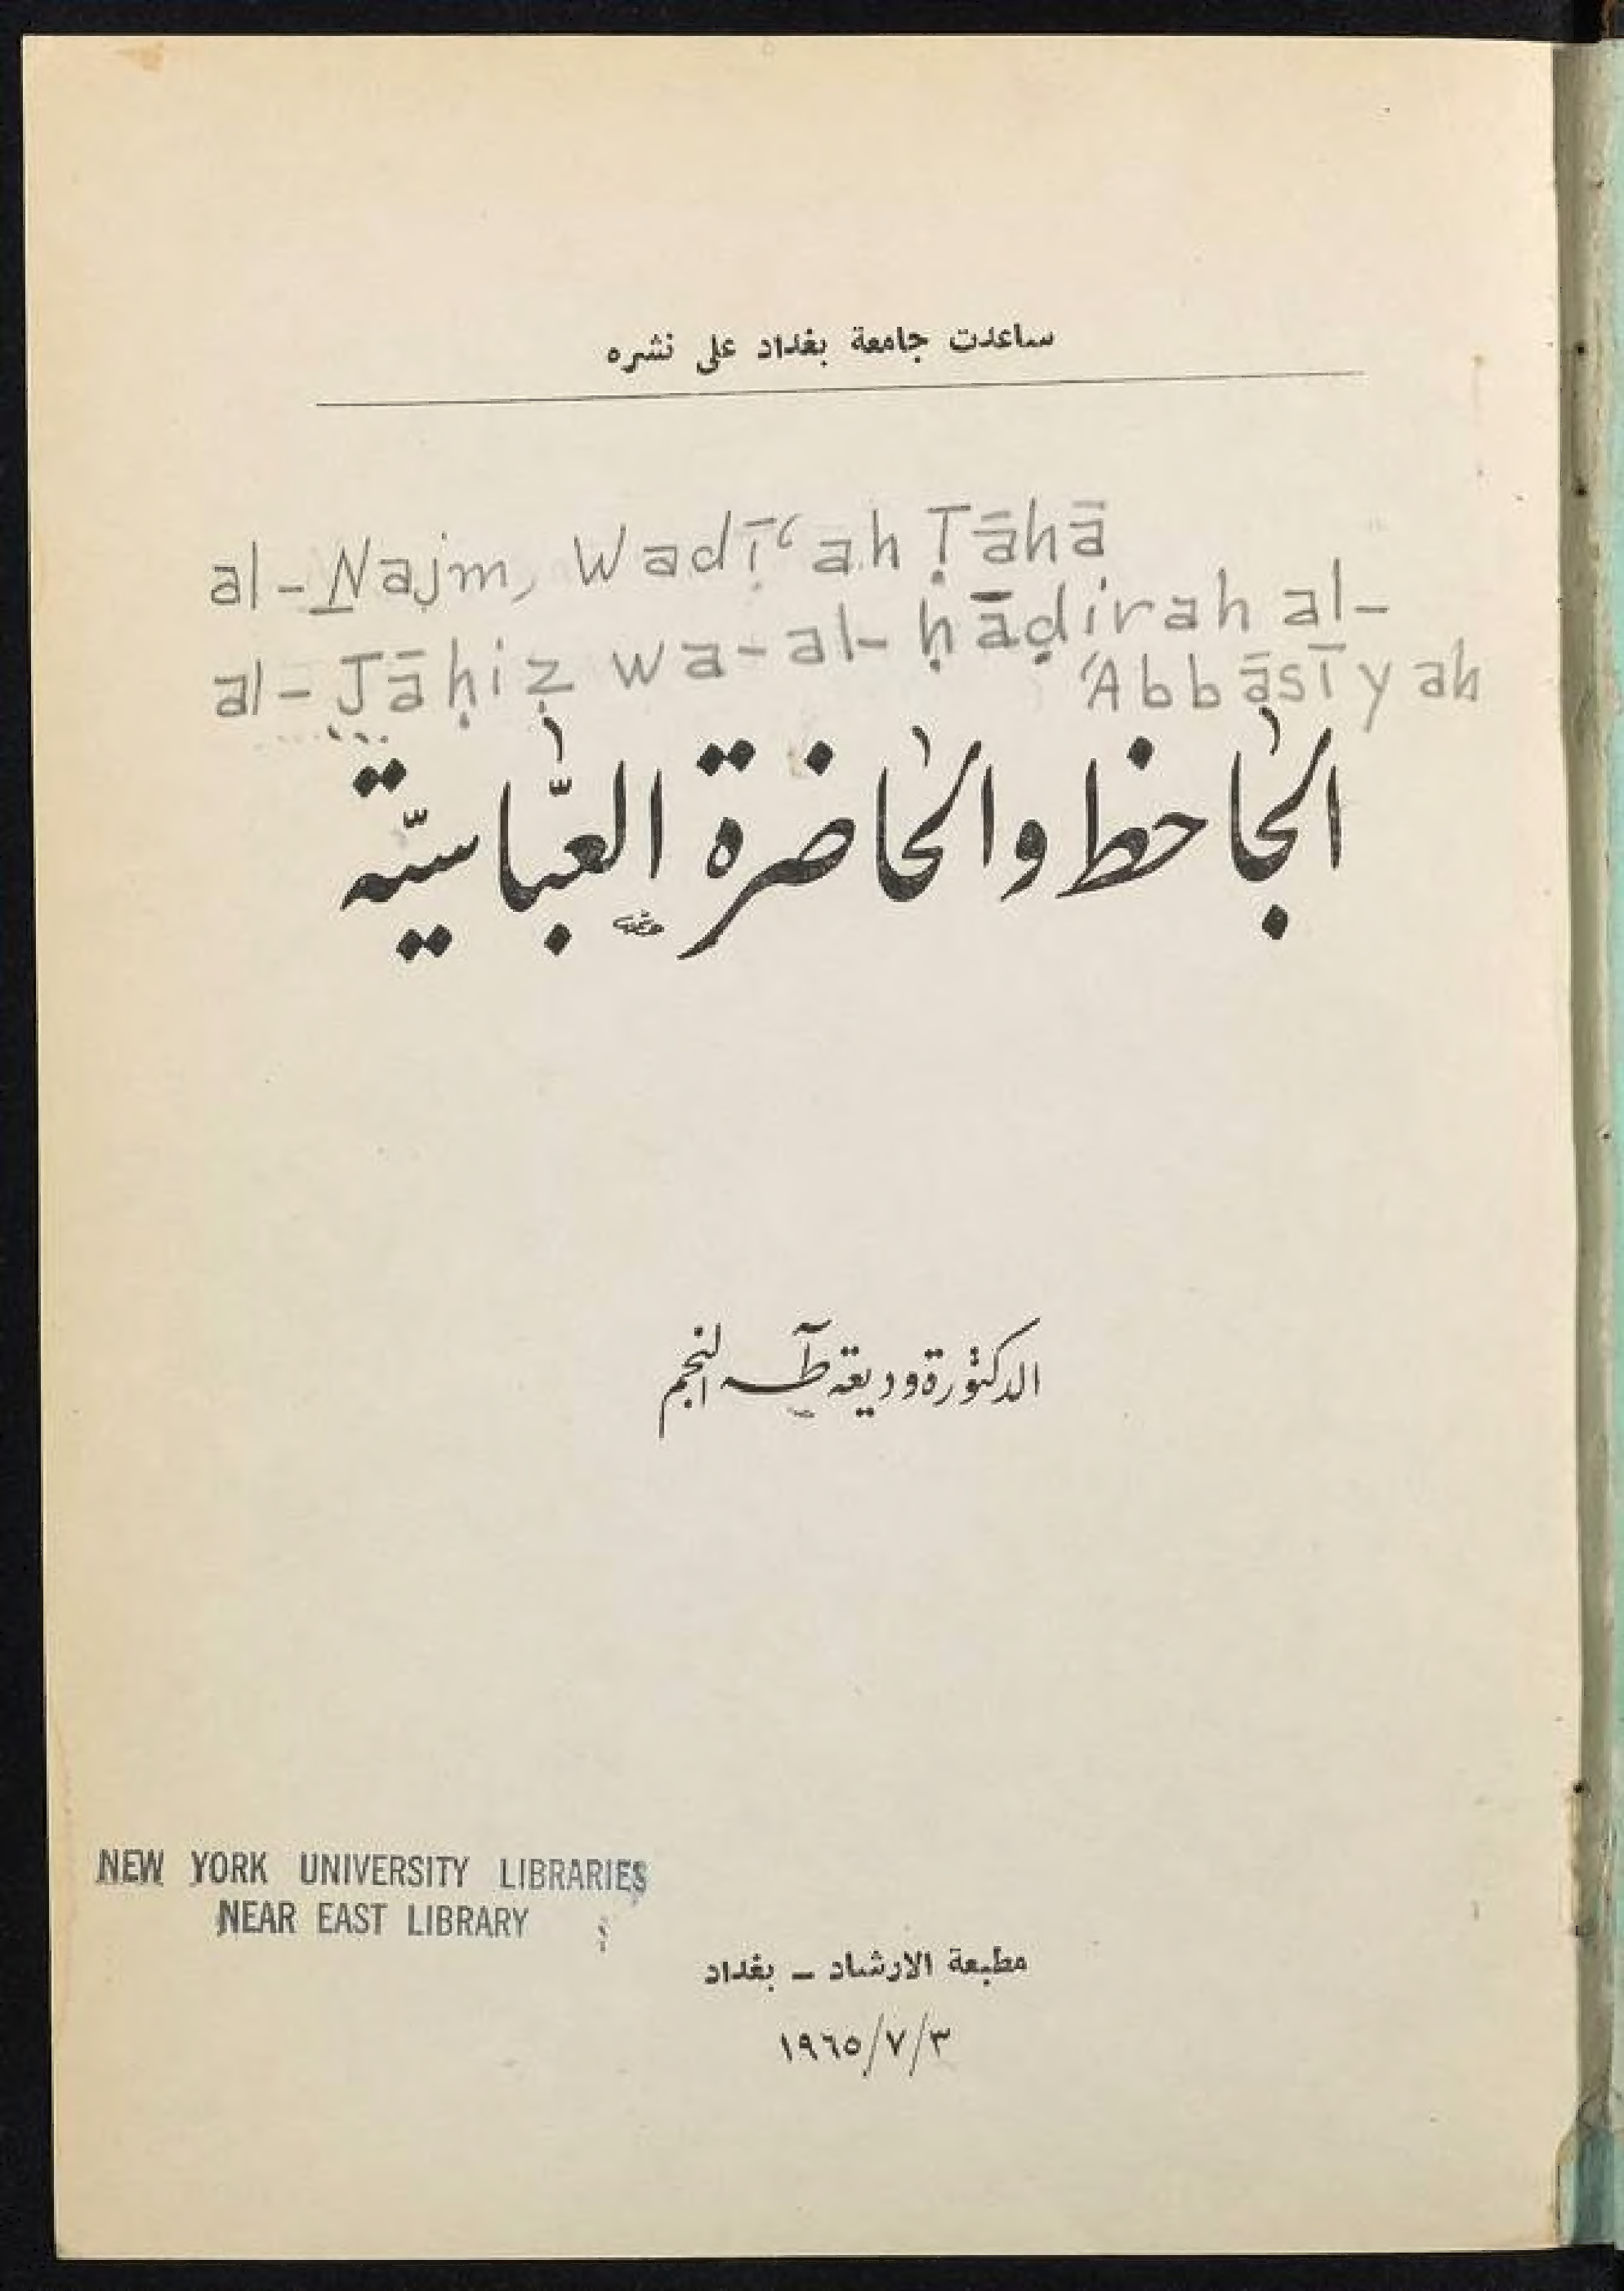 ساعدت جامعة بغداد على نشره
al-Najm, Wadīʿah Ṭāhā
al-Jāḥiẓ wa-al-ḥāḍirah al-
ʿAbbāsīyah
الجاحظ والحاضرة العبّاسيّة
الدكتورة وديعة طٓه النجم
NEW YORK UNIVERSITY LIBRARIES
NEAR EAST LIBRARY
مطبعة الارشاد – بغداد
١٩٦٥/٧/٣